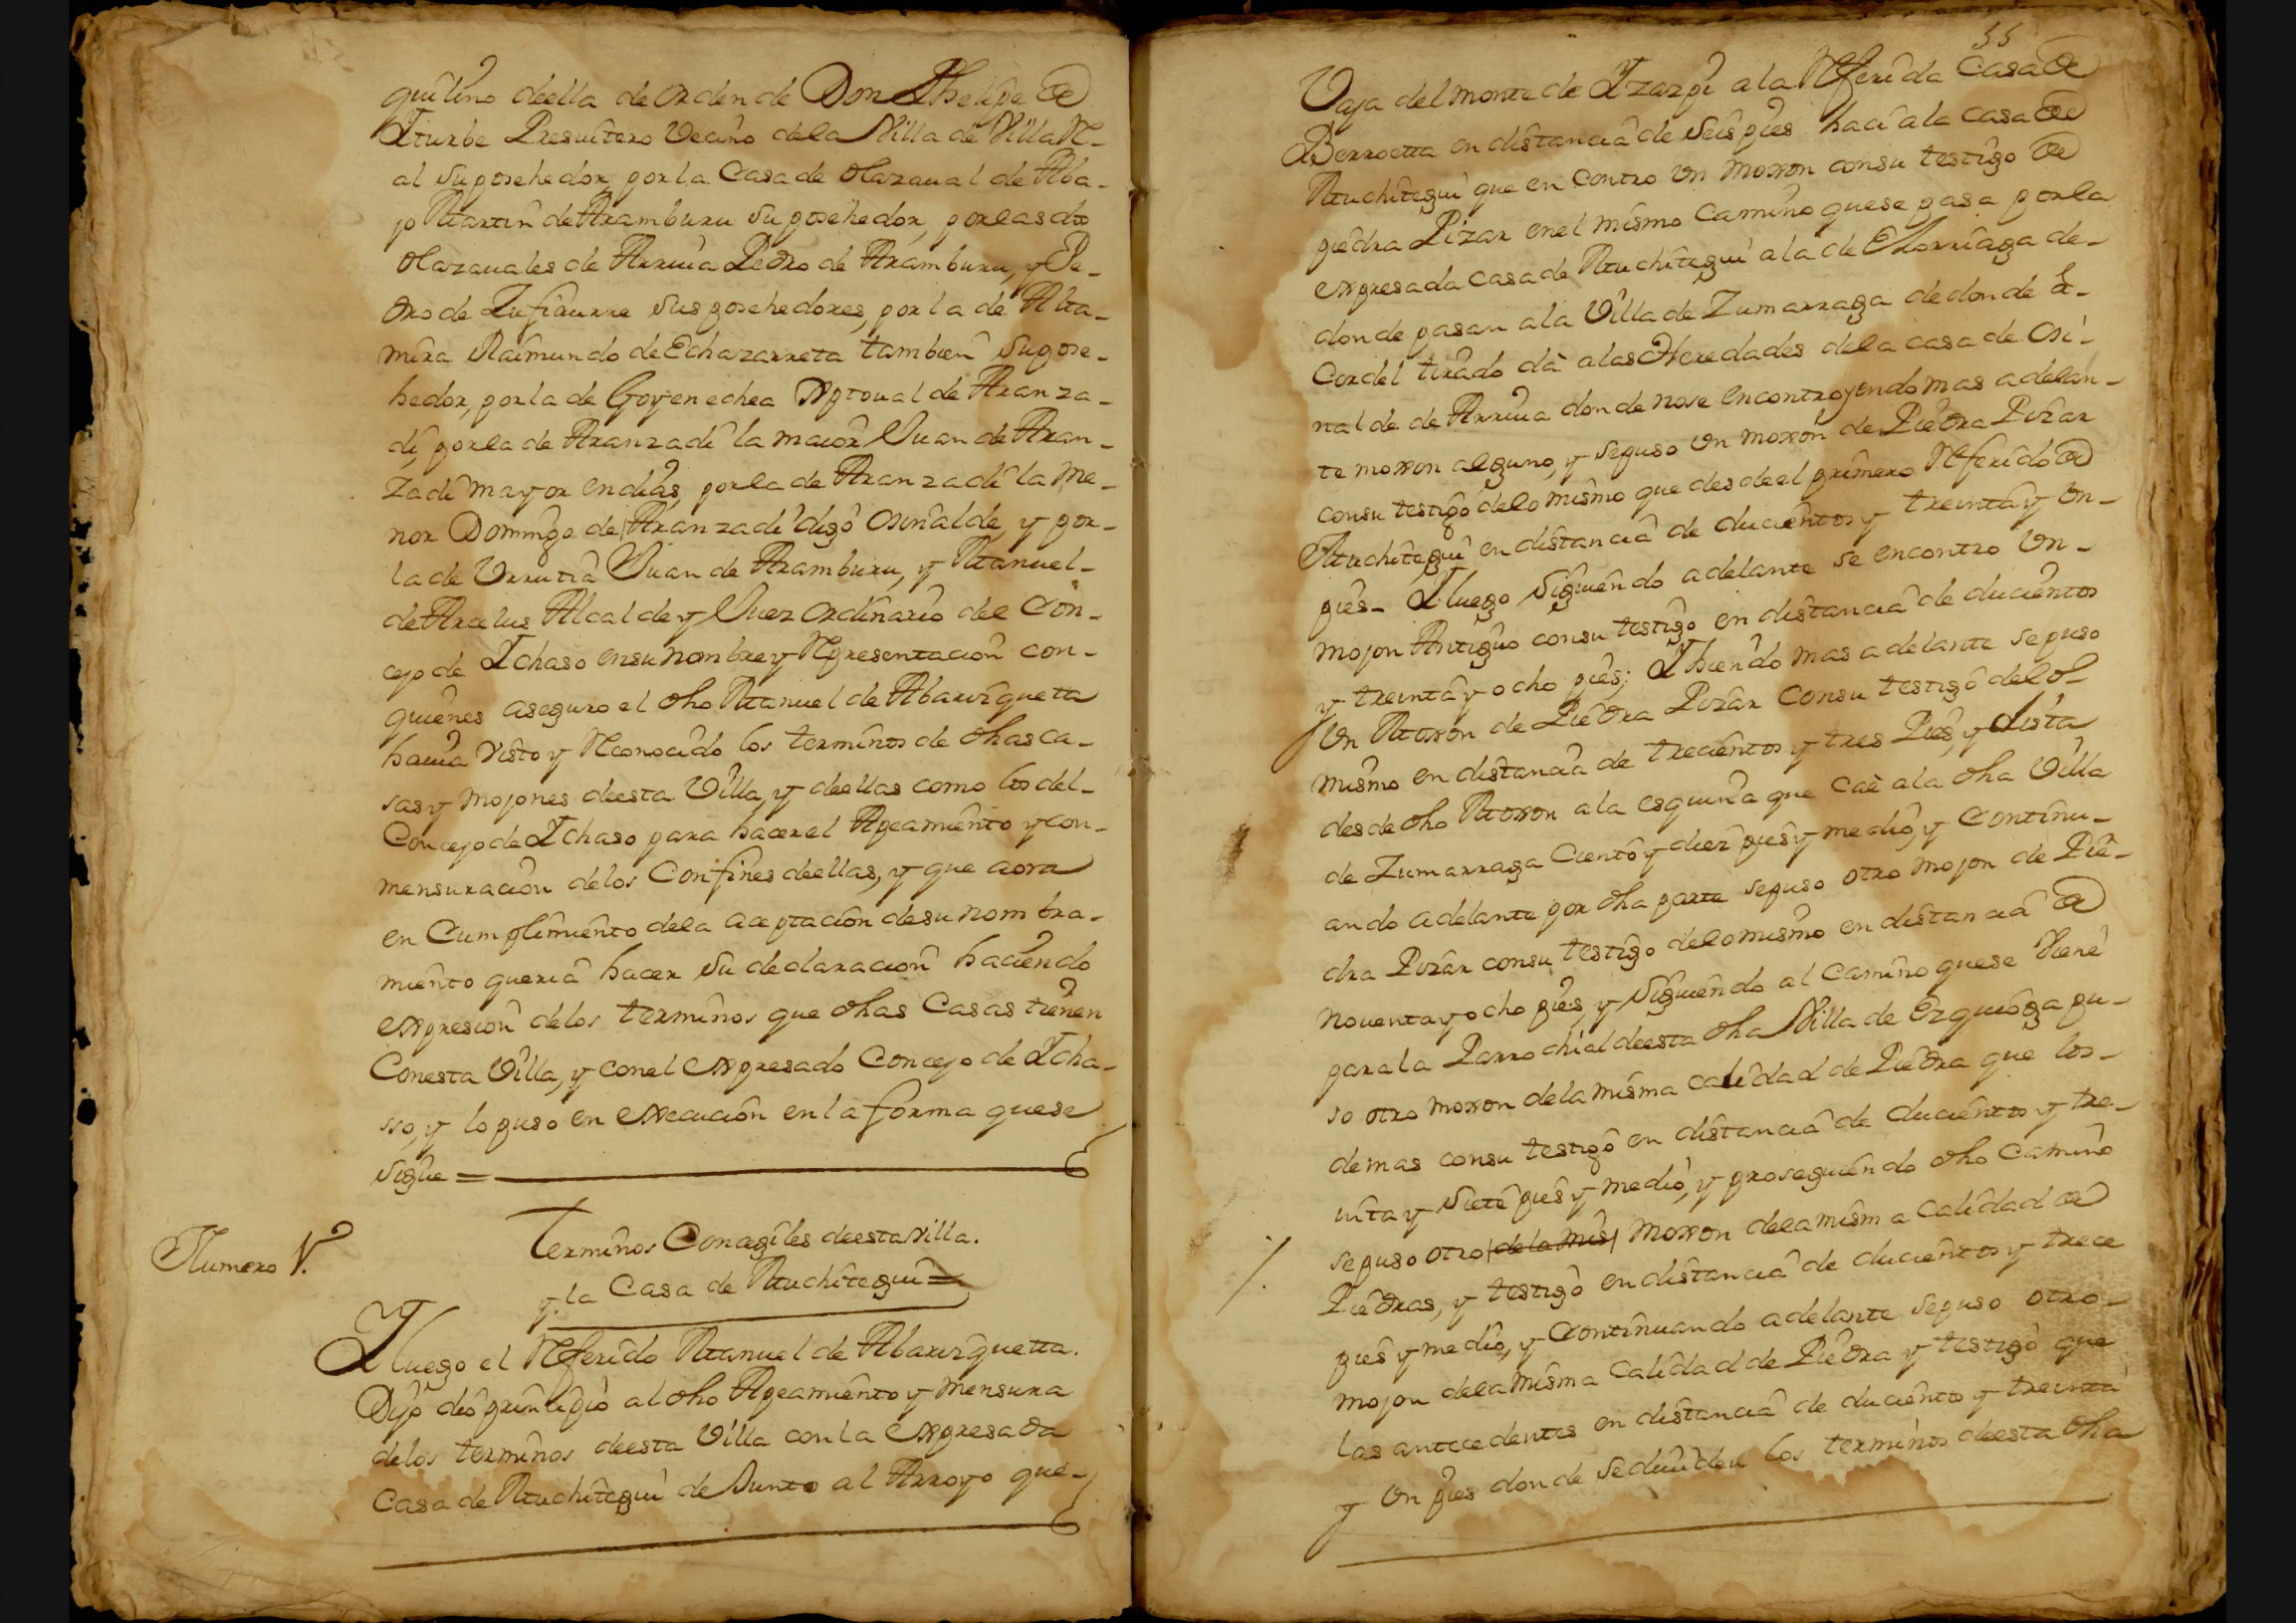 quilino deella de orden de Don Phelipe de
Iturbe Presuitero Vecino dela Villa de Villa Re-
al su posehedor, por la Casa de Olazaual de Aba-
jo Martin de Aramburu su posehedor, por las dos
Olazauales de Arriua Pedro de Aramburu, y Pe-
dro de Lusiaurre sus posehedores, por la de Alta-
mira Raimundo de Echazarreta tambien su pose-
hedor, por la de Goyenechea Xptoual de Aranza-
di, por la de Aranzadi la maior Juan de Aran-
zadi mayor en dias, por la de Aranzadi la me-
nor Domingo de Aranzadi digo Osinalde, y por-
la de Urrutia Juan de Aramburu, y Manuel-
de Arcelus Alcalde y Juez ordinario del Con-
cejo de Ichaso en su nombre y Representacion con-
quienes aseguro el dho Manuel de Abarizqueta
hauia visto y Reconocido los terminos de dhas ca-
sas y mojones deesta Villa, y deellas como los del-
Concejo de Ichaso para hacer el Apeamiento y con-
mensuracion delos Confines deellas, y que aora
en Cumplimiento dela aceptacion de su nombra-
miento queria hacer su declaracion haciendo
expresion delos terminos que dhas Casas tienen
Con esta Villa, y con el expresado Concejo de Icha-
sso, y lo puso en execucion en la forma que se
sigue =
Terminos Concegiles deesta villa.
y la Casa de Muchitegui =
Numero 1.º
I luego el Referido Manuel de Abarizquetta.
Dijo dio principio al dho Apeamiento y mensura
delos terminos deesta Villa con la expresada
Casa de Muchitegui de Junto al Arroyo que-
55
Vaja del monte de Izazpi a la Referida Casa de
Berroetta en distancia de seis pies hacia la casa de
Muchitegui que encontro un moxon con su testigo de
piedra Pizar en el mismo Camino que se pasa por la
expresada casa de Muchitegui a la de Elorriaga de-
donde pasan a la Villa de Zumarraga de donde a-
Cordel tirado dà a las Heredades dela casa de Osi-
nalde de Arriua donde no se encontro yendo mas adelan-
te moxon alguno, y se puso un moxon de Piedra Pizar
con su testigo delo mismo que desde el primero Referido de
Muchitegui en distancia de ducientos y treinta y un-
pies- I luego siguiendo adelante se encontro un-
mojon Antiguo con su testigo en distancia de ducientos
y treinta y ocho pies; I hiendo mas adelante se puso
un Moxon de Piedra Pizar con su testigo delo-
mismo en distancia de trecientos y tres Pies, y dista
desde dho Moxon a la esquina que caè a la dha Villa
de Zumarraga Ciento y diez pies y medio, y Continu-
ando adelante por dha parte se puso otro mojon de Pie-
dra Pizar con su testigo delo mismo en distancia de
nouenta y ocho pies, y siguiendo al Camino que se viene
para la Parrochiel deesta dha Villa de Ezquioga pu-
so otro moxon dela misma calidad de Piedra que los-
demas con su testigo en distancia de ducientos y tre-
inta y siete pies y medio, y prosiguiendo dho Camino
se puso otro dela mis moxon dela misma Calidad de
Piedras, y testigo en distancia de ducientos y trece
pies y medio, y Continuando adelante se puso otro-
mojon dela misma Calidad de Piedra y testigo que
los antecedentes en distancia de duciento y treinta
y un pies donde se diuiden los terminos deesta dha